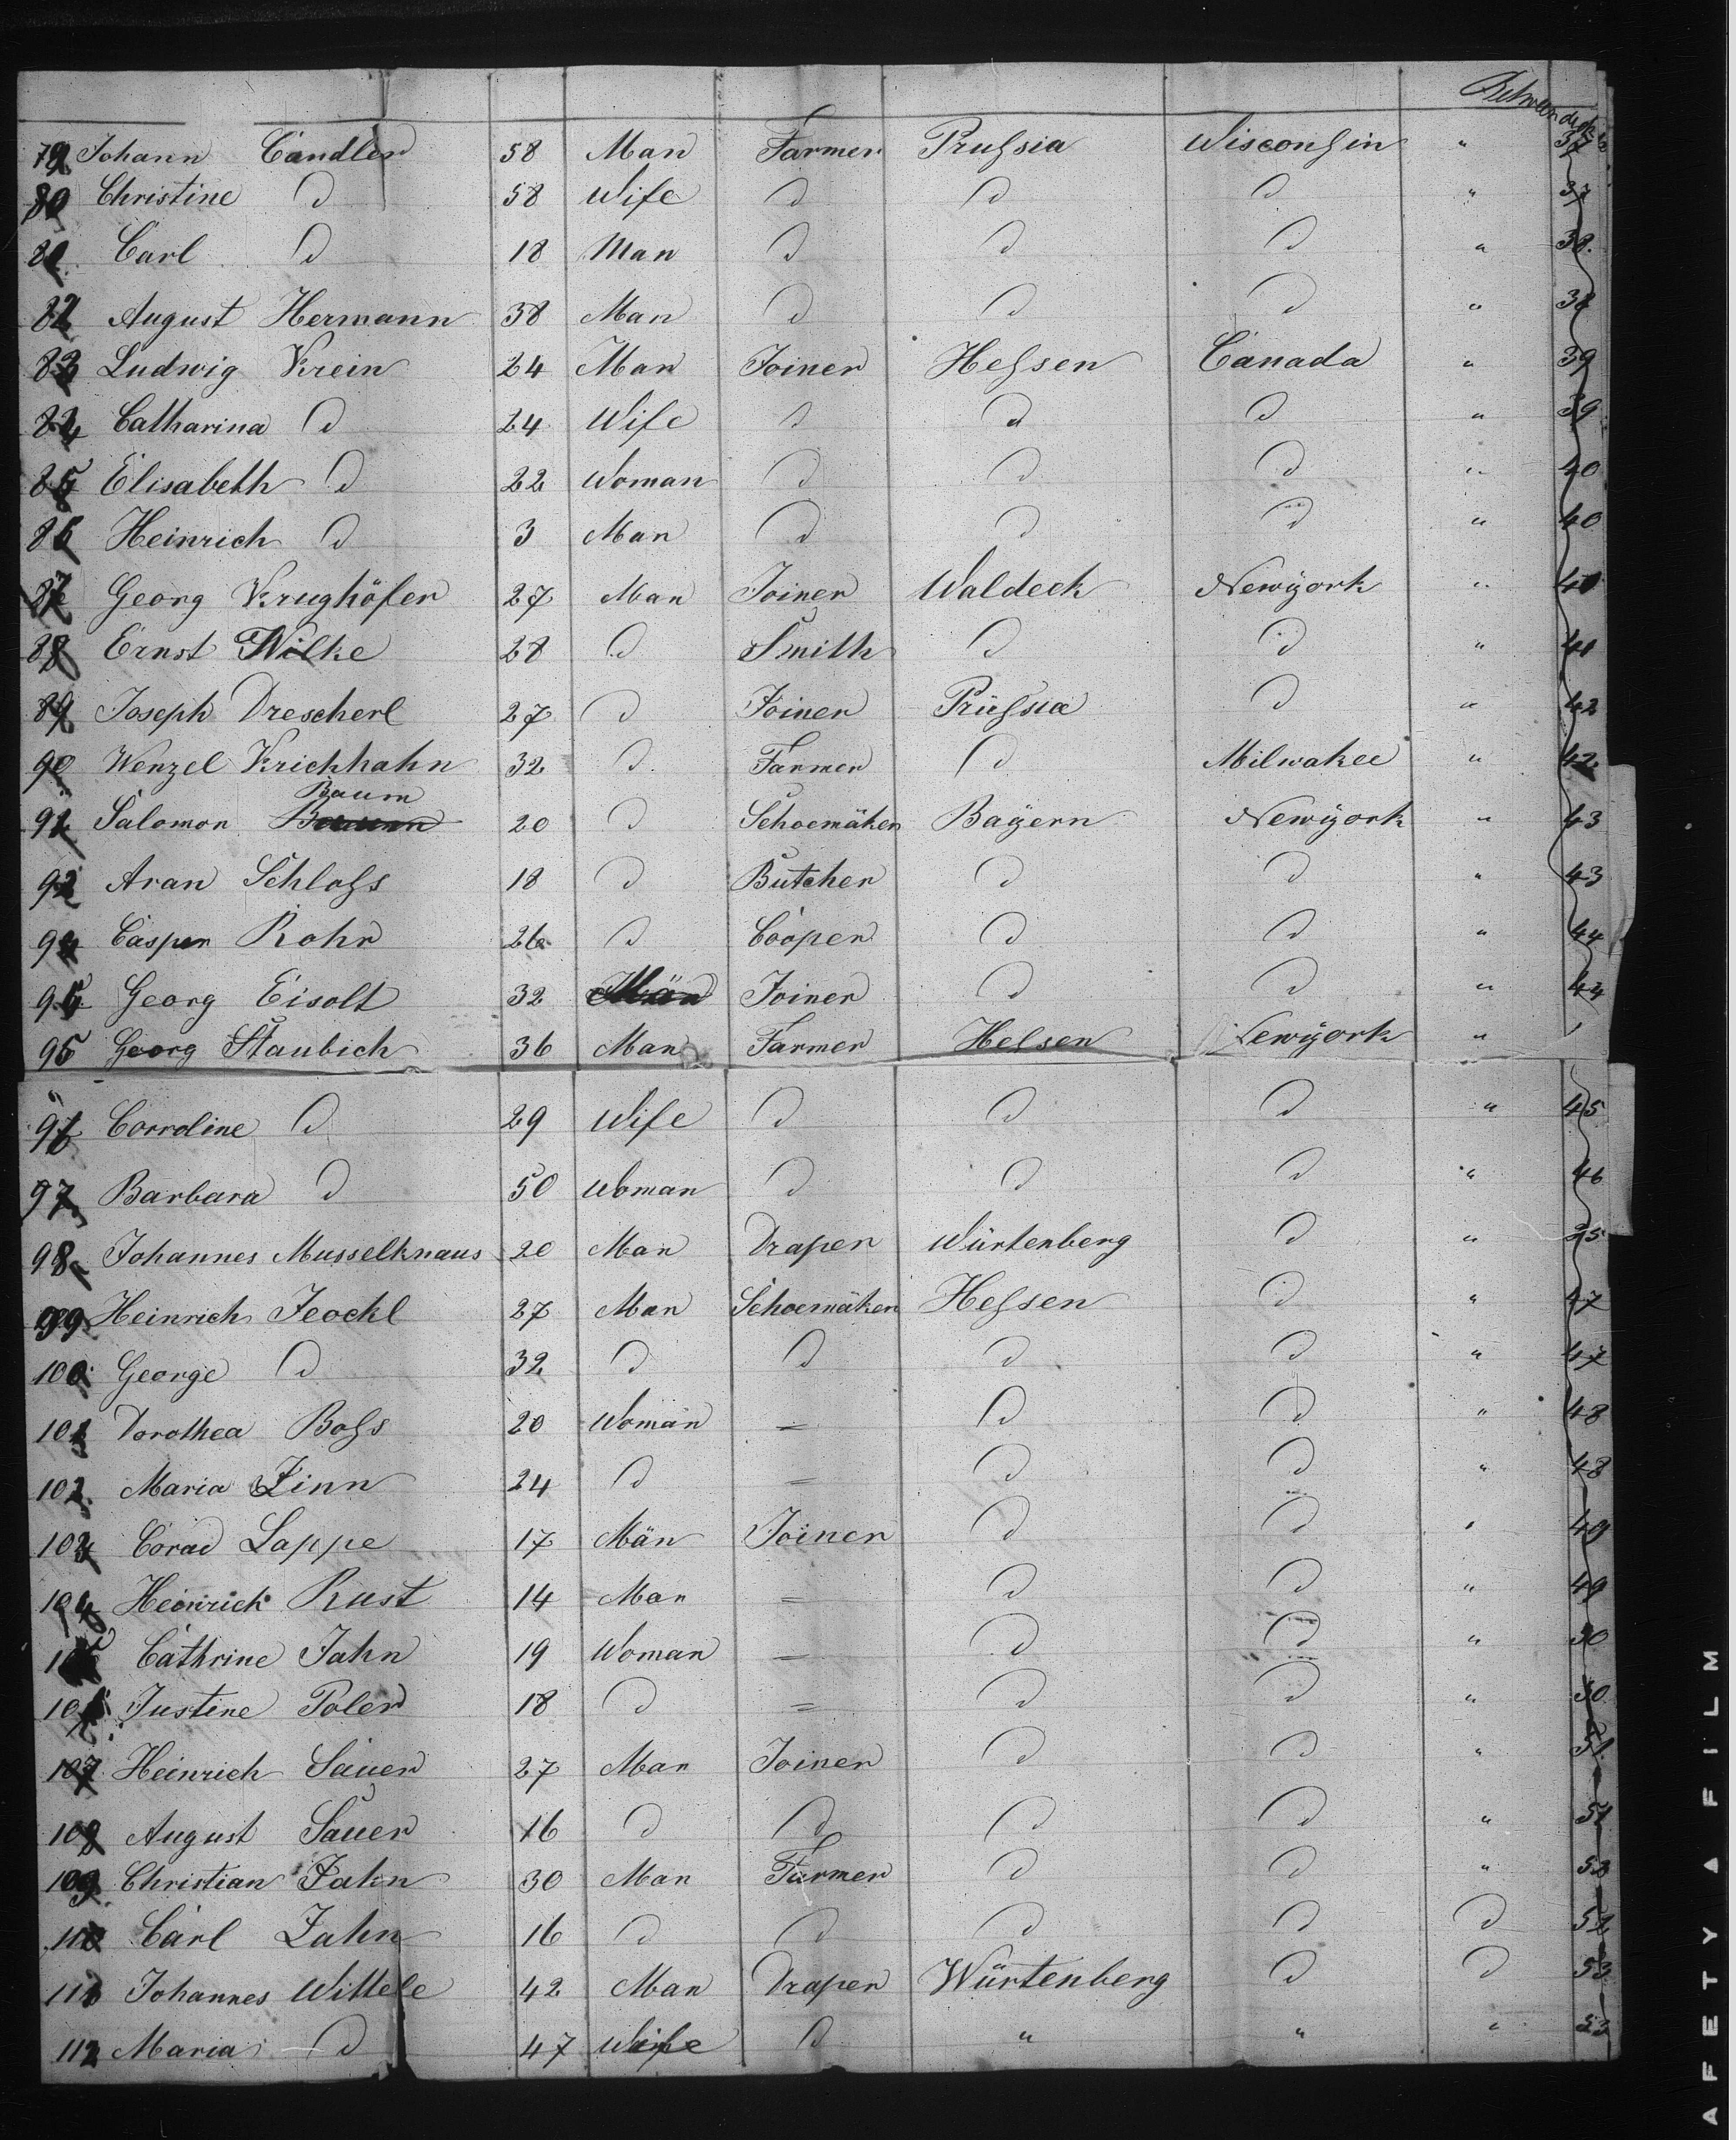 Between decks
79 Johann Candler 58 Man Farmer Prußsia Wisconßin " 37
80 Christine d 58 Wife d d d " 37
81 Carl d 18 Man d d d " 38
82 August Hermann 38 Man d d d " 38
83 Ludwig Krein 24 Man Joiner Heßsen Canada " 39
84 Catharina d 24 Wife d d d " 39
85 Elisabeth d 22 Woman d d d " 40
86 Heinrich d 3 Man d d d " 40
87 Georg Krughöfer 27 Man Joiner Waldeck Newÿork " 41
88 Ernst Wilke 28 d Smith d d " 41
89 Joseph Drescherl 27 d Joiner Prüßsia d " 42
90 Wenzel Krichhahn 32 d Farmer d Milwakee " 42
Baum
91 Salomon 20 d Schoemäker Bayern Newÿork " 43
92 Aran Schloßs 18 d Butcher d d " 43
Casper Rohr 26 d Cooper d d " 44
Georg Eisolt 32 Män Joiner d d " 44
95 Georg Staubich 36 Man Farmer Helsen Newÿork "
Corroline d 29 Wife d d d " 45
97 Barbara d 50 Woman d d d " 46
98 Johannes Musselknaus 20 Man Draper Würtenberg d "
99 Heinrich Jeockl 27 Man Schoemäker Heßsen d " 47
100 George d 32 d d d d " 47
101 Dorothea Boßs 20 Woman = d d " 48
102 Maria Zinn 24 d = d d " 48
103 Corad Lappe 17 Män Joiner d d " 49
104 Heinrich Rust 14 Man = d d " 49
105 Cathrine Jahn 19 Woman = d d " 50
106 Justine Poler 18 d = d d " 50
107 Heinrich Sauer 27 Man Joiner d d " 51
108 August Sauer 16 d d d d " 51
109 Christian Zahn 30 Man Farmer d d " 52
110 Carl Zahn 16 d d d d d 52
111 Johannes Wittele 42 Man Draper Würtenberg d d 53
112 Maria d 47 Wife d " " " 53
AFETY ▲ FILM